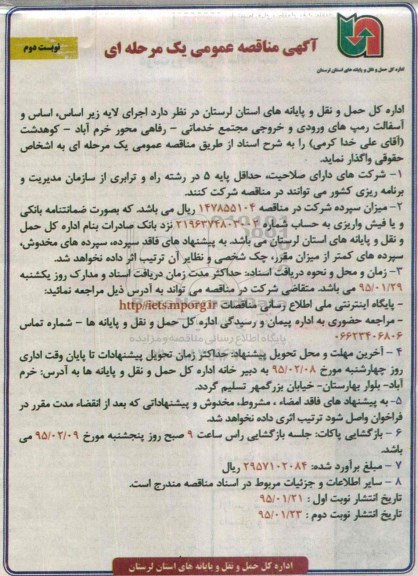 اداره کل حمل و نقل و پایانه های استان لرستان
آگهی مناقصه عمومی یک مرحله ای
نوبت دوم
اداره کل حمل و نقل و پایانه های استان لرستان در نظر دارد اجرای لایه زیر اساس، اساس و
آسفالت رمپ های ورودی و خروجی مجتمع خدماتی – رفاهی محور خرم آباد – کوهدشت
(آقای علی خدا کرمی) را به شرح اسناد از طریق مناقصه عمومی یک مرحله ای به اشخاص
حقوقی واگذار نماید.
۱– شرکت های دارای صلاحیت، حداقل پایه ۵ در رشته راه و ترابری از سازمان مدیریت و
برنامه ریزی کشور می توانند در مناقصه شرکت کنند.
۲– میزان سپرده شرکت در مناقصه ۱۴۷۸۵۵۱۰۴ ریال می باشد. که بصورت ضمانتنامه بانکی
و یا فیش واریزی به حساب شماره نزد بانک صادرات بنام اداره کل حمل
و نقل و پایانه های استان لرستان می باشد. به پیشنهاد های فاقد سپرده، سپرده های مخدوش،
سپرده های کمتر از میزان مقرر، چک شخصی و نظایر آن ترتیب اثر داده نخواهد شد.
۳– زمان و محل و نحوه دریافت اسناد: حداکثر مدت زمان دریافت اسناد و مدارک روز یکشنبه
۹۵/۰۱/۲۹ می باشد. متقاضی شرکت در مناقصه می تواند به آدرس ذیل مراجعه نمائید:
– پایگاه اینترنتی ملی اطلاع رسانی مناقصات http://iets.mporg.ir
– مراجعه حضوری به اداره پیمان و رسیدگی اداره کل حمل و نقل و پایانه ها – شماره تماس
۰۶۶۲۳۴۰۶۸۰۶
۴– آخرین مهلت و محل تحویل پیشنهاد: حداکثر زمان تحویل پیشنهادات تا پایان وقت اداری
روز چهارشنبه مورخ ۹۵/۰۲/۰۸ به دبیر خانه اداره کل حمل و نقل و پایانه ها به آدرس: خرم
آباد– بلوار بهارستان– خیابان بزرگمهر تسلیم گردد.
۵– به پیشنهاد های فاقد امضاء ، مشروط، مخدوش و پیشنهاداتی که بعد از انقضاء مدت مقرر در
فراخوان واصل شود ترتیب اثری داده نخواهد شد.
۶– بازگشایی پاکات: جلسه بازگشایی راس ساعت ۹ صبح روز پنجشنبه مورخ ۹۵/۰۲/۰۹ می
باشد.
۷– مبلغ برآورد شده: ۲۹۵۷۱۰۲۰۸۴ ریال
۸– سایر اطلاعات و جزئیات مربوط در اسناد مناقصه مندرج است.
تاریخ انتشار نوبت اول : ۹۵/۰۱/۲۱
تاریخ انتشار نوبت دوم : ۹۵/۰۱/۲۳
اداره کل حمل و نقل و پایانه های استان لرستان